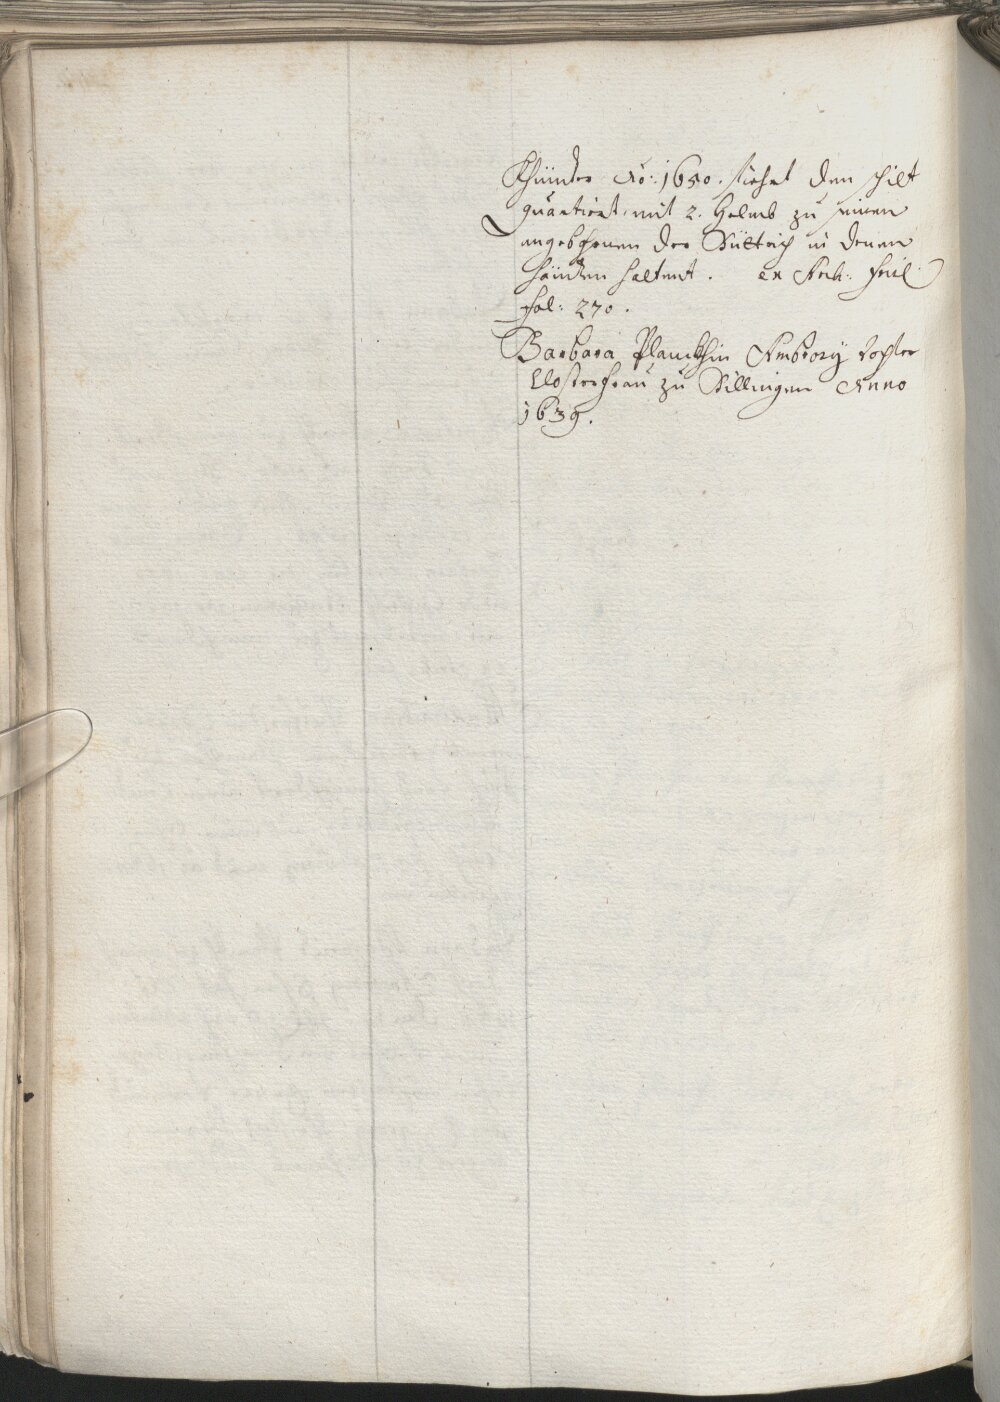 Khinder Aō: 1650. fiehrt den schilt
quartiert, mit 2. Helmb zu einen
angebohrnen der Wüttrich in denen
händen haltent. ex Arch: Heil:
fol: 270.
Barbara Planckhin Ambrosy dochter
Closterfrau zu Villingen Anno
1639.